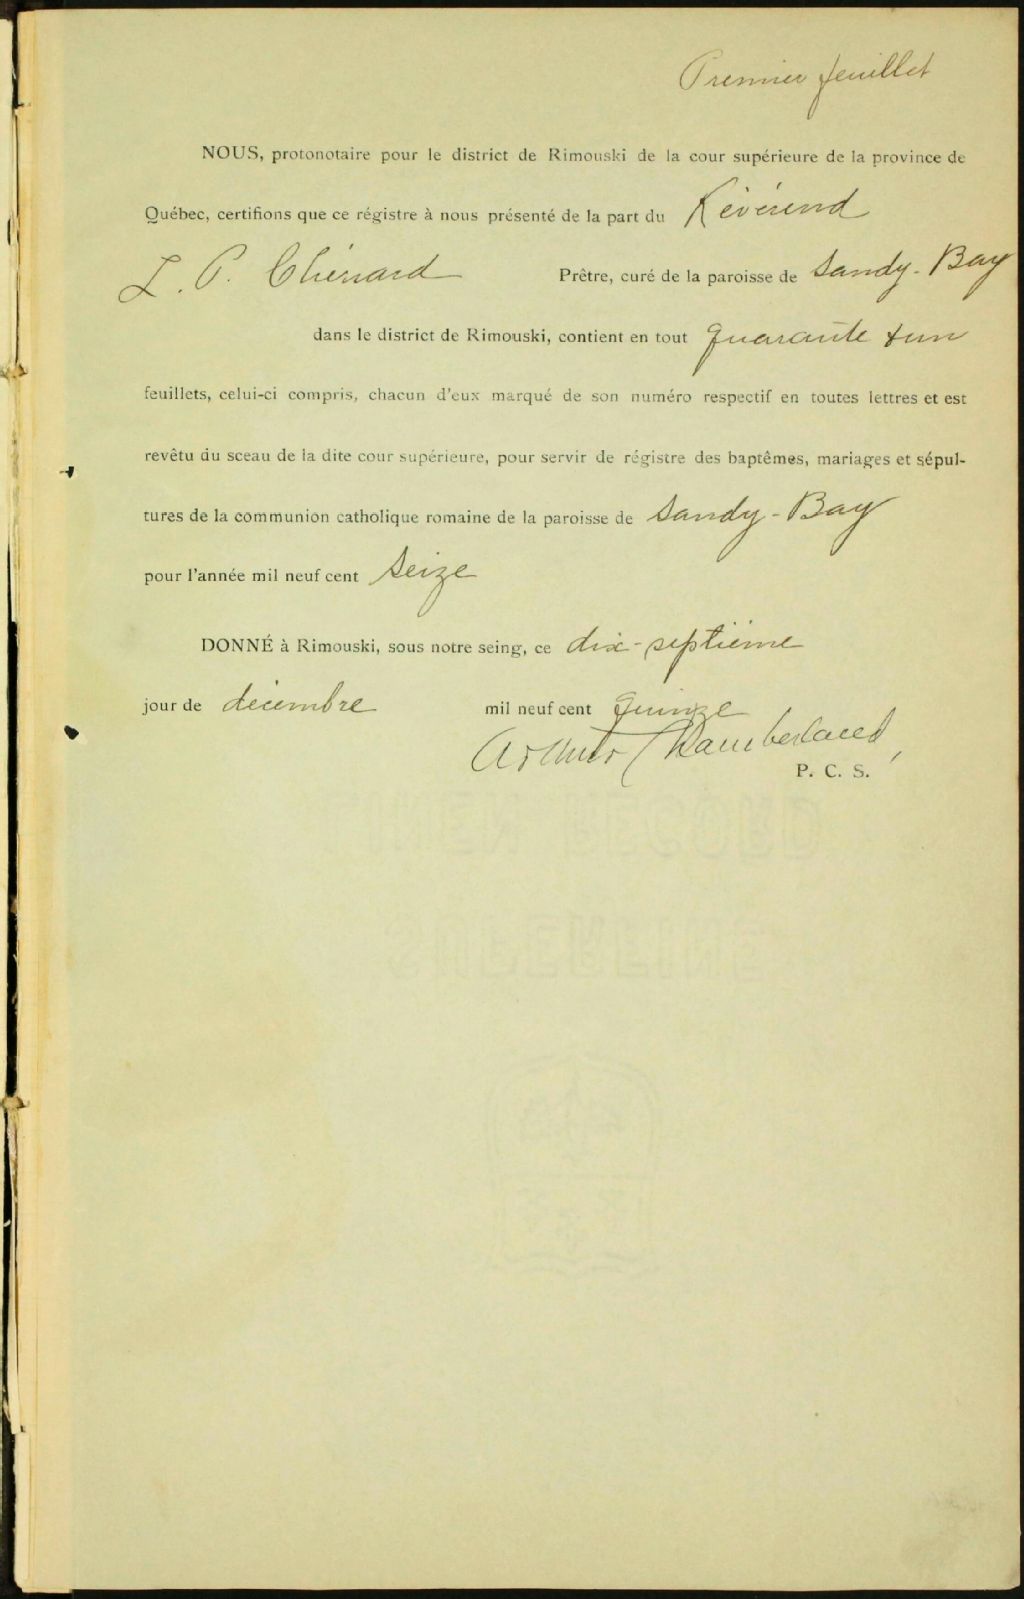 Premier feuillet
NOUS, protonotaire pour le district de Rimouski de la cour supérieure de la province de
Québec, certifions que ce régistre à nous présenté de la part du Révérend
L. P. Chénard Prêtre, curé de la paroisse de Sandy-Bay
dans le district de Rimouski, contient en tout quarante & un
feuillets, celui-ci compris, chacun d'eux marqué de son numéro respectif en toutes lettres et est
revêtu du sceau de la dite cour supérieure, pour servir de régistre des baptêmes, mariages et sépul-
tures de la communion catholique romaine de la paroisse de Sandy-Bay
pour l'année mil neuf cent seize
DONNÉ à Rimouski, sous notre seing, ce dix-septième
jour de décembre mil neuf cent quinze
Arthur Chamberland,
P. C. S.